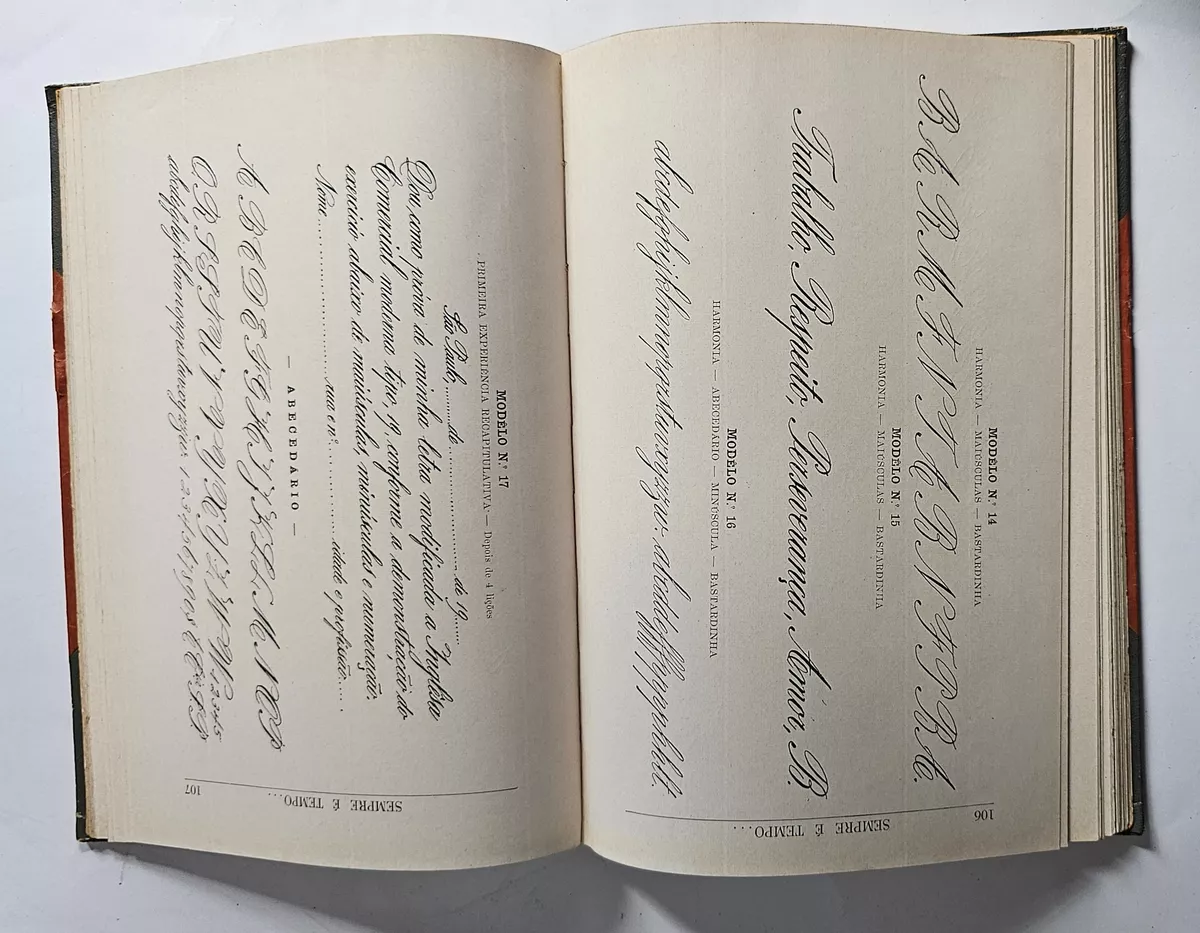 106
SEMPRE É TEMPO....
MODÊLO N.º 14
HARMONIA — MAIÚSCULAS — BASTARDINHA
B A R M F N T A R N F P R A.
MODÊLO N.º 15
HARMONIA — MAIÚSCULAS — BASTARDINHA
Trabalho, Respeito, Perseverança, Amor, B.
MODÊLO N.º 16
HARMONIA — ABECEDÁRIO — MINÚSCULA — BASTARDINHA
abcdefghijklmnopqrstuvxyzw.
SEMPRE É TEMPO....
107
MODÊLO N.º 17
PRIMEIRA EXPERIÊNCIA RECAPITULATIVA — Depois de 4 lições
São Paulo,........de........................de 19......
Dou como prova de minha letra modificada a Inglêsa
Comercial moderna tipo, 19, conforme a demonstração do
exercício abaixo de maiúsculas, minúsculas e numeração.
Nome............................rua e nº....................idade e profissão.....
— ABECEDÁRIO —
A B C D E F G H I J K L M N O P
Q, R S T U V